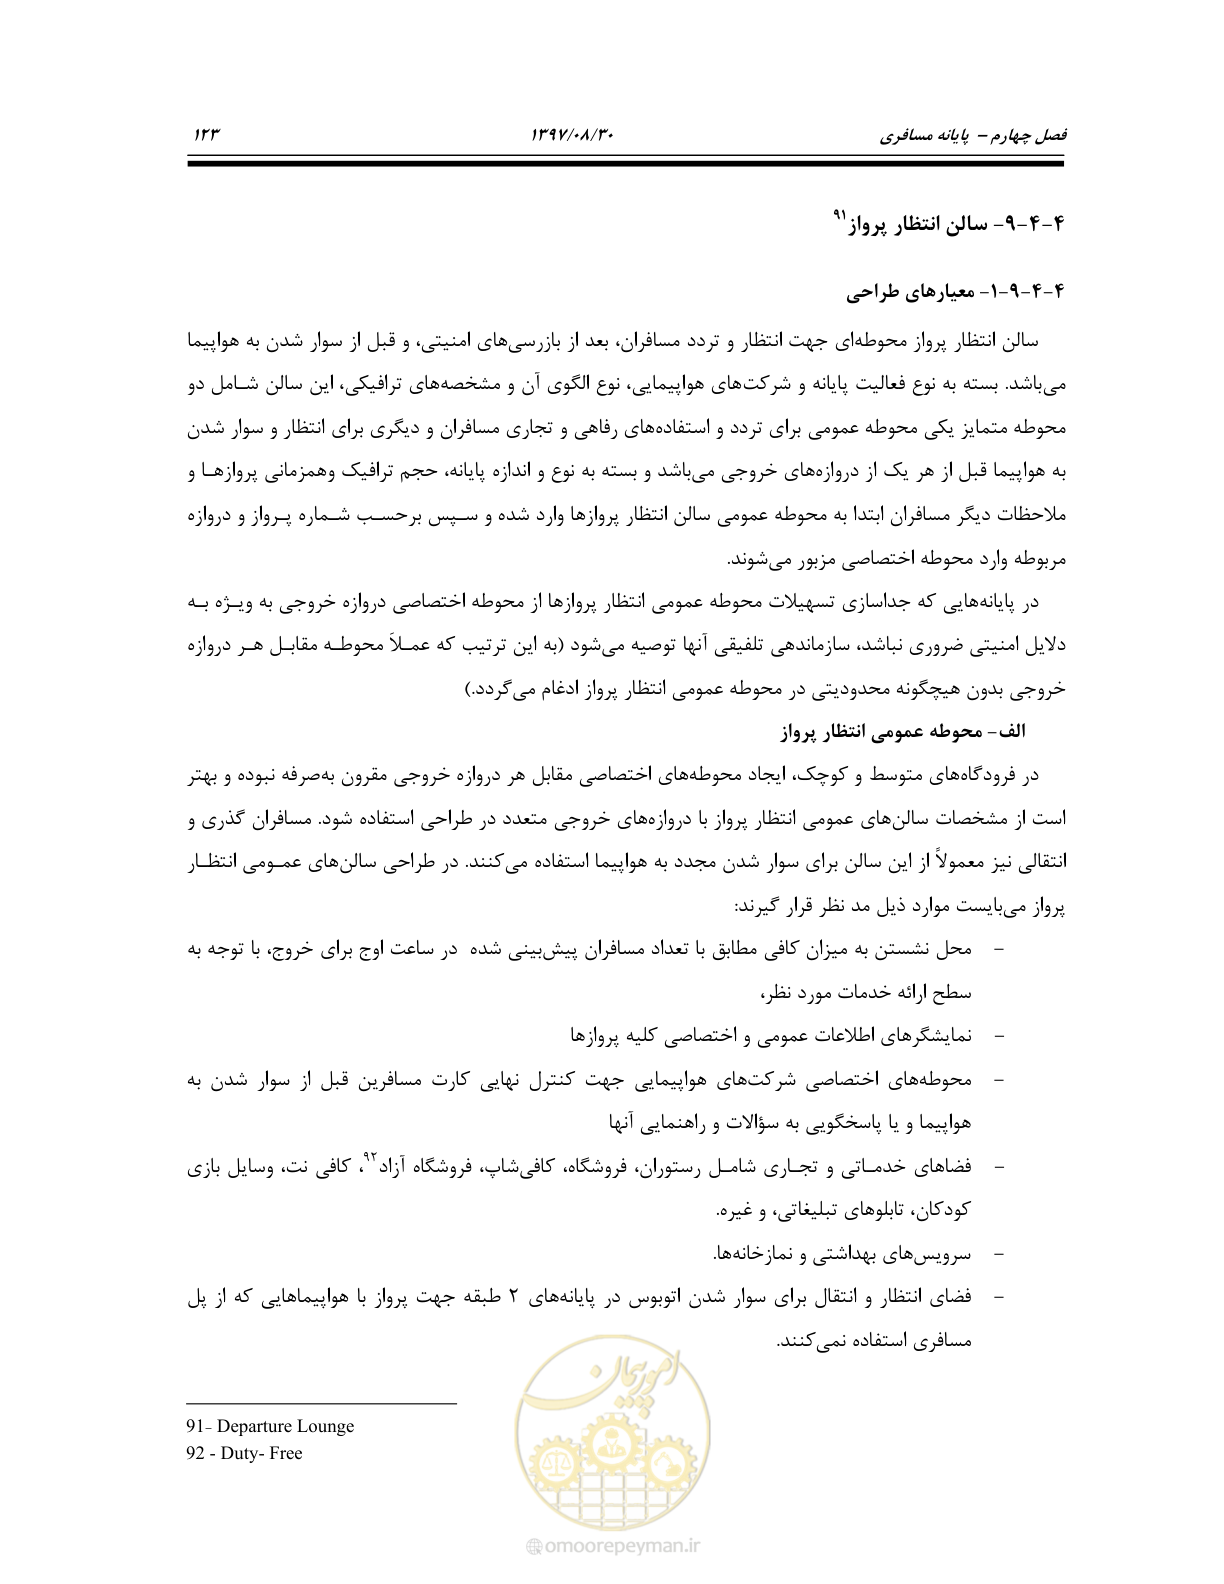 فصل چهارم – پایانه مسافری ۱۳۹۷/۰۸/۳۰ ۱۲۳
۴-۴-۹- سالن انتظار پرواز۹۱
۴-۴-۹-۱- معیارهای طراحی
سالن انتظار پرواز محوطه‌ای جهت انتظار و تردد مسافران، بعد از بازرسی‌های امنیتی، و قبل از سوار شدن به هواپیما
می‌باشد. بسته به نوع فعالیت پایانه و شرکت‌های هواپیمایی، نوع الگوی آن و مشخصه‌های ترافیکی، این سالن شـامل دو
محوطه متمایز یکی محوطه عمومی برای تردد و استفاده‌های رفاهی و تجاری مسافران و دیگری برای انتظار و سوار شدن
به هواپیما قبل از هر یک از دروازه‌های خروجی می‌باشد و بسته به نوع و اندازه پایانه، حجم ترافیک وهمزمانی پروازهـا و
ملاحظات دیگر مسافران ابتدا به محوطه عمومی سالن انتظار پروازها وارد شده و سـپس برحسـب شـماره پـرواز و دروازه
مربوطه وارد محوطه اختصاصی مزبور می‌شوند.
در پایانه‌هایی که جداسازی تسهیلات محوطه عمومی انتظار پروازها از محوطه اختصاصی دروازه خروجی به ویـژه بـه
دلایل امنیتی ضروری نباشد، سازماندهی تلفیقی آنها توصیه می‌شود (به این ترتیب که عمـلاً محوطـه مقابـل هـر دروازه
خروجی بدون هیچگونه محدودیتی در محوطه عمومی انتظار پرواز ادغام می‌گردد.)
الف- محوطه عمومی انتظار پرواز
در فرودگاه‌های متوسط و کوچک، ایجاد محوطه‌های اختصاصی مقابل هر دروازه خروجی مقرون به‌صرفه نبوده و بهتر
است از مشخصات سالن‌های عمومی انتظار پرواز با دروازه‌های خروجی متعدد در طراحی استفاده شود. مسافران گذری و
انتقالی نیز معمولاً از این سالن برای سوار شدن مجدد به هواپیما استفاده می‌کنند. در طراحی سالن‌های عمـومی انتظـار
پرواز می‌بایست موارد ذیل مد نظر قرار گیرند:
– محل نشستن به میزان کافی مطابق با تعداد مسافران پیش‌بینی شده در ساعت اوج برای خروج، با توجه به
سطح ارائه خدمات مورد نظر،
– نمایشگرهای اطلاعات عمومی و اختصاصی کلیه پروازها
– محوطه‌های اختصاصی شرکت‌های هواپیمایی جهت کنترل نهایی کارت مسافرین قبل از سوار شدن به
هواپیما و یا پاسخگویی به سؤالات و راهنمایی آنها
– فضاهای خدمـاتی و تجـاری شامـل رستوران، فروشگاه، کافی‌شاپ، فروشگاه آزاد۹۲، کافی نت، وسایل بازی
کودکان، تابلوهای تبلیغاتی، و غیره.
– سرویس‌های بهداشتی و نمازخانه‌ها.
– فضای انتظار و انتقال برای سوار شدن اتوبوس در پایانه‌های ۲ طبقه جهت پرواز با هواپیماهایی که از پل
مسافری استفاده نمی‌کنند.
91- Departure Lounge
92 - Duty- Free
امور پیمان
omoorepeyman.ir